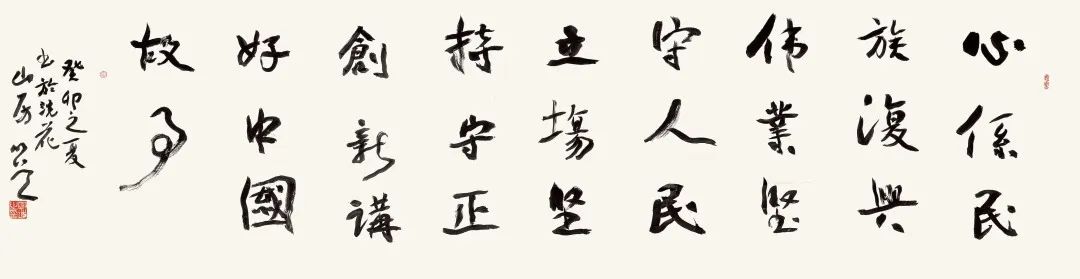 心係民
族復興
伟業堅
守人民
立場坚
持守正
創新講
好中國
故事
癸卯之夏
书於浣花
山房